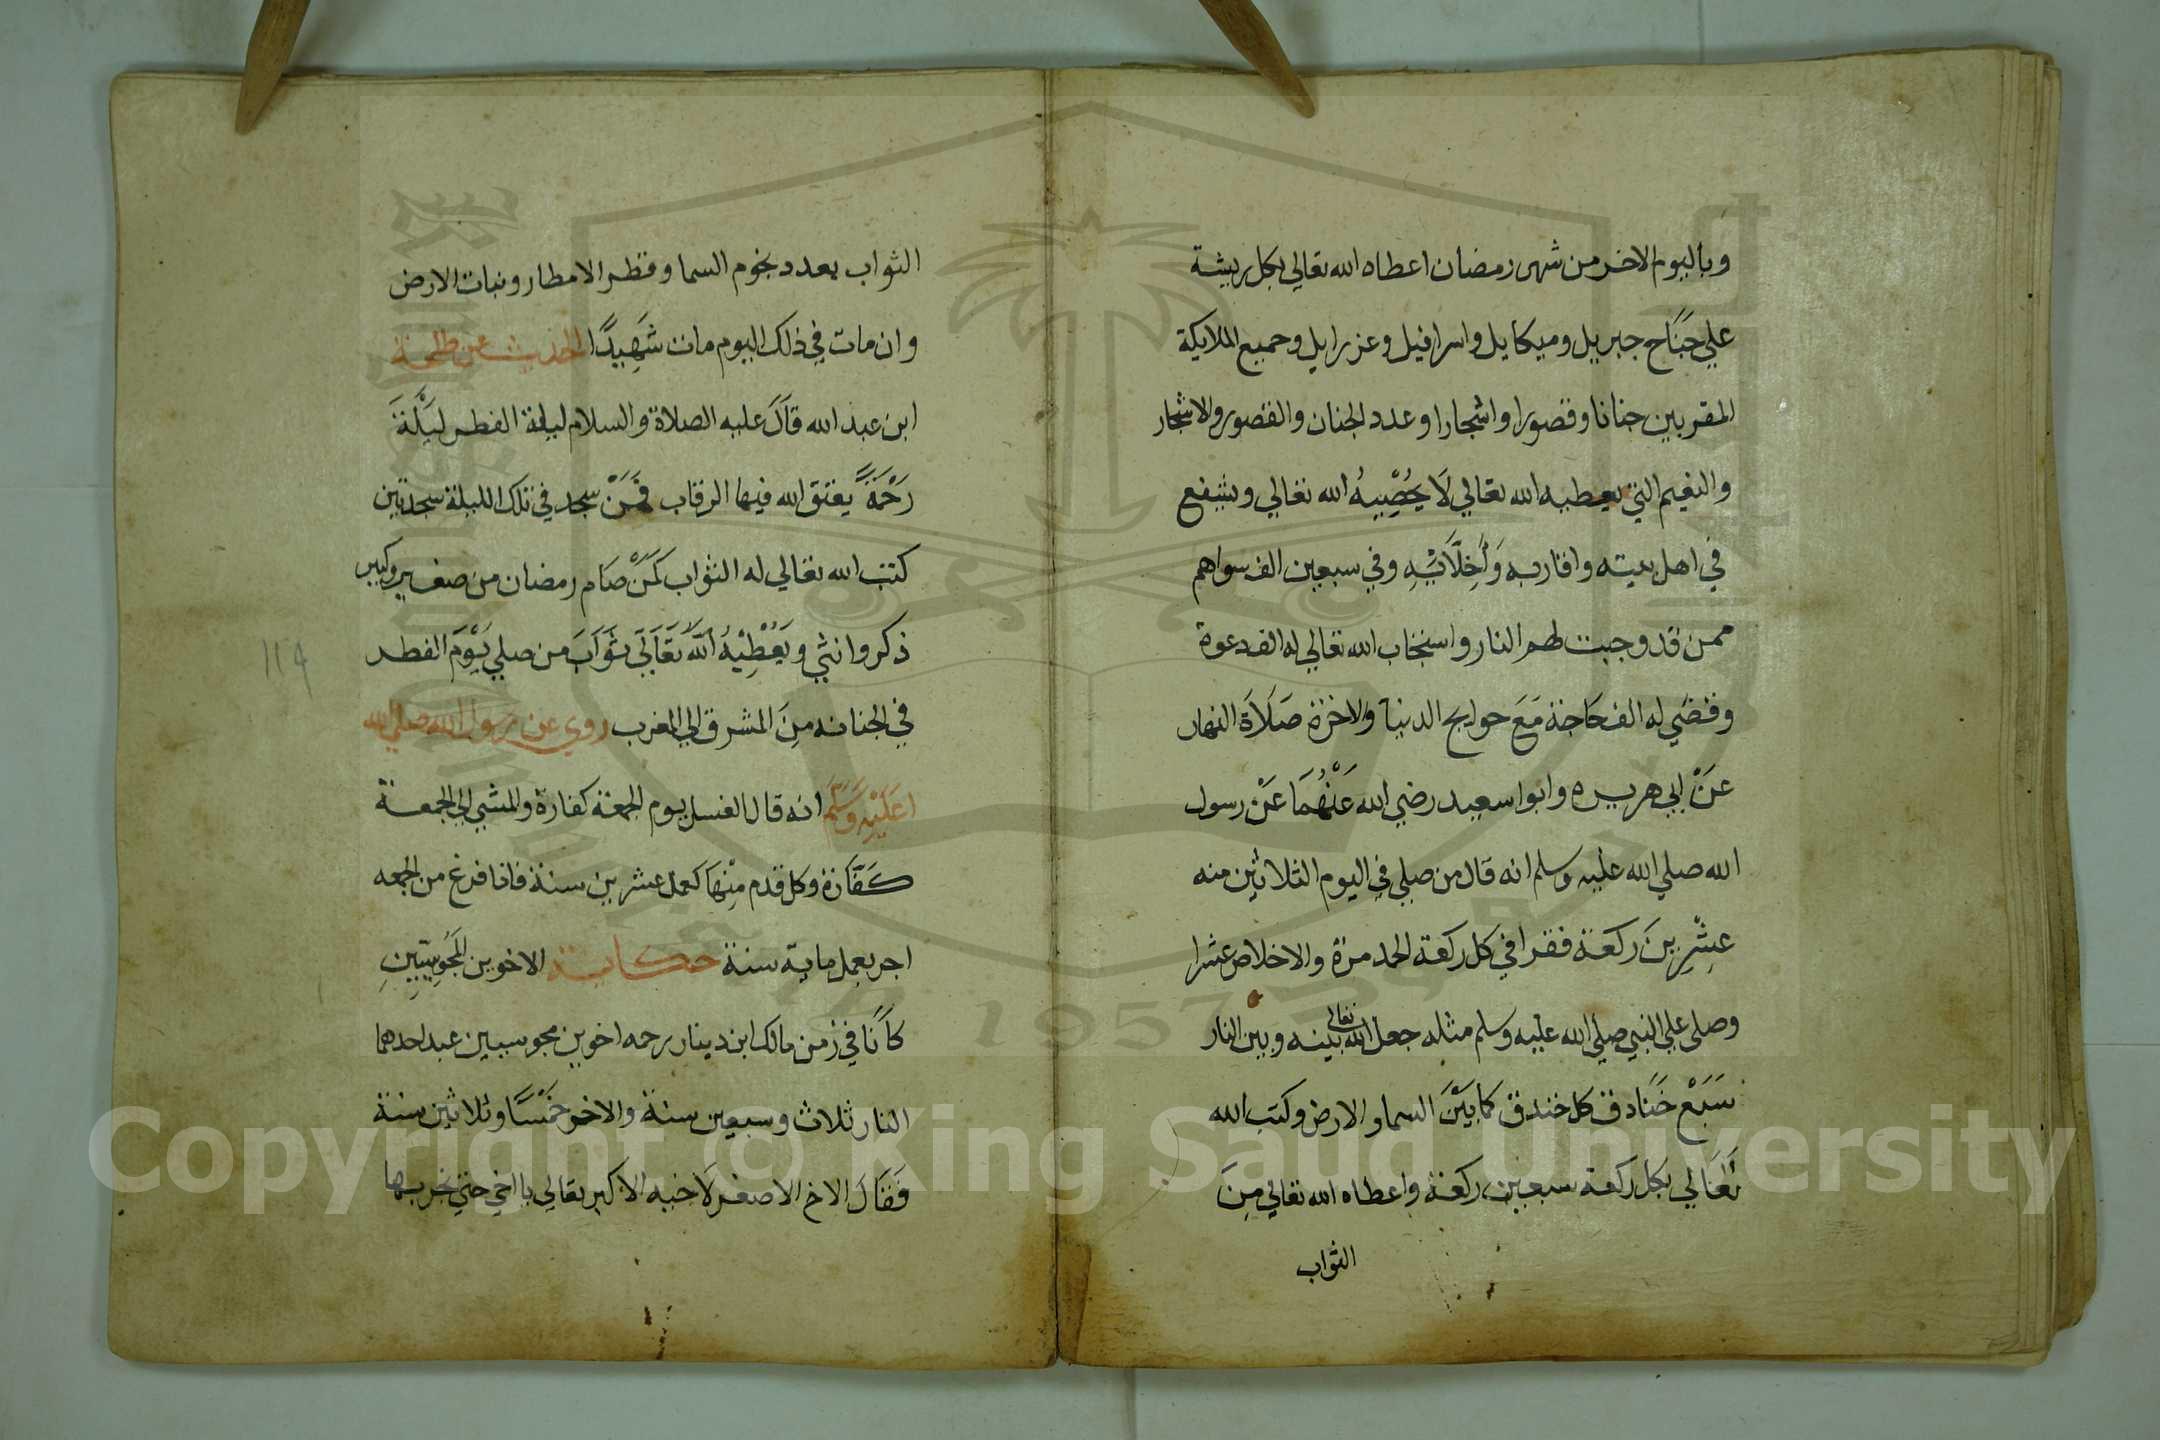 وباليوم الاخر من شهر رمضان اعطاه الله تعالي بكل ريشة
علي جَنَاح جبريل وميكايل واسرافيل وعزرايل وجميع الملايكة
المقربين جنانا وقصورا واشجارا وعدد الجنان والقصور والاشجار
والنعيم التي يعطيه الله تعالي لَا يُحْصِيهُ الله تعالي ويشفع
في اهل بيته واقاربه وَأَخِلَّايِهِ وفي سبعين الف سواهم
ممن قد وجبت لهم النار واستجاب الله تعالي له الف دعوة
وقضي له الف حاجة مَعَ حوايج الدنيا والاخرة صَلَاة النهار
عَنْ ابي هريره وابوا سعيد رضي الله عَنْهُمَا عَنْ رسول
الله صلي الله عليه وسلم انه قال من صلي في اليوم الثلاثين منه
عِشْرِينَ ركعة فقرا في كل ركعة الحمد مرة والاخلاص عشرا
وصلي علي النبي صلي الله عليه وسلم مثله جعل الله تعالي بينه وبين النار
سَبَعْ خَنَادق كل خندق كما بَيْنَ السما والارض وكتب الله
تَعَالي بكل ركعة سبعين ركعة واعطاه الله تعالي مِنَ
الثواب
الثواب بعدد نجوم السما وقطر الامطار ونبات الارض
وان مات في ذلك اليوم مات شَهِيدًا الحديث عن طلحة
ابن عبد الله قَالَ عليه الصلاة والسلام ليلة الفطر لَيْلَةَ
رَحْمَةً يعتق الله فيها الرقاب فَمَنْ سجد في تلك الليلة سجدتين
كتب الله تعالي له الثواب كَمَنْ صَام رمضان من صغير وكبير
ذكر وانثي ويَعُطِيْهُ اللَّه تَعَالَي ثَوَابَ من صلي يَوْمَ الفطر
في الجنانه مِنَ المشرق الي المغرب روي عن رسول الله صلي الله
عَلَيْهِ وَسَلَّم انه قال الغسل يوم الجمعة كفارة والمشي الي الجمعة
كَفَّارَة وكل قدم مِنْهَا كعمل عشرين سنة فاذا فرغ من الجمعه
اجر بعمل ماية سنة حكاية الاخوين المَجُوسِيِينِ
كَانَا في زمن مالك ابن دينار رحمه اخوين مجوسيين عبد احدهما
النار ثلاث وسبعين سنة والاخر خَمْسًا وثلاثين سنة
فَقَالَ الاخ الاصغر لَاخيه الاكبر تعالي يا اخي حتي نجربها
١١٩
Copyright © King Saud University
1957